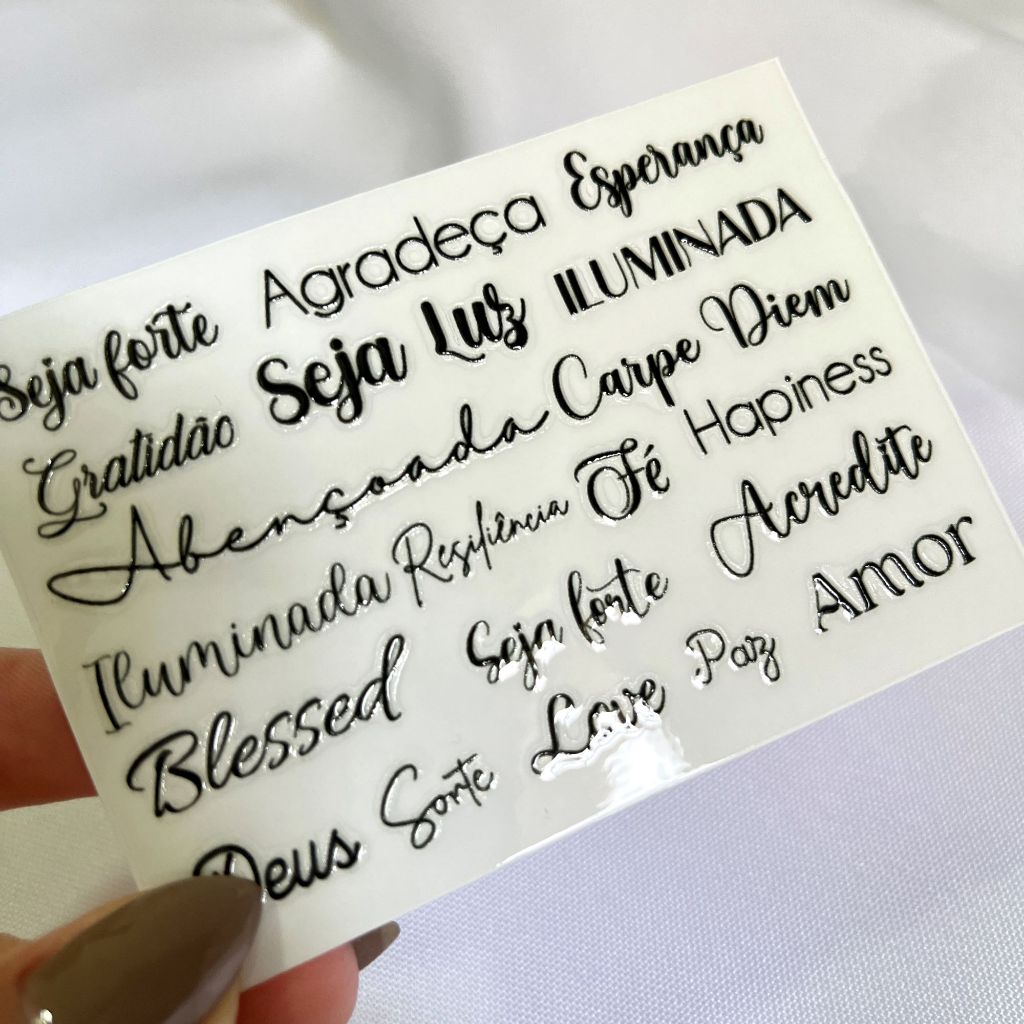 Seja forte Agradeça Esperança
Gratidão Seja Luz ILUMINADA
Abençoada Carpe Diem
Iluminada Resiliência Fé Happiness
Blessed Seja forte Acredite
Deus Sorte Love Paz Amor